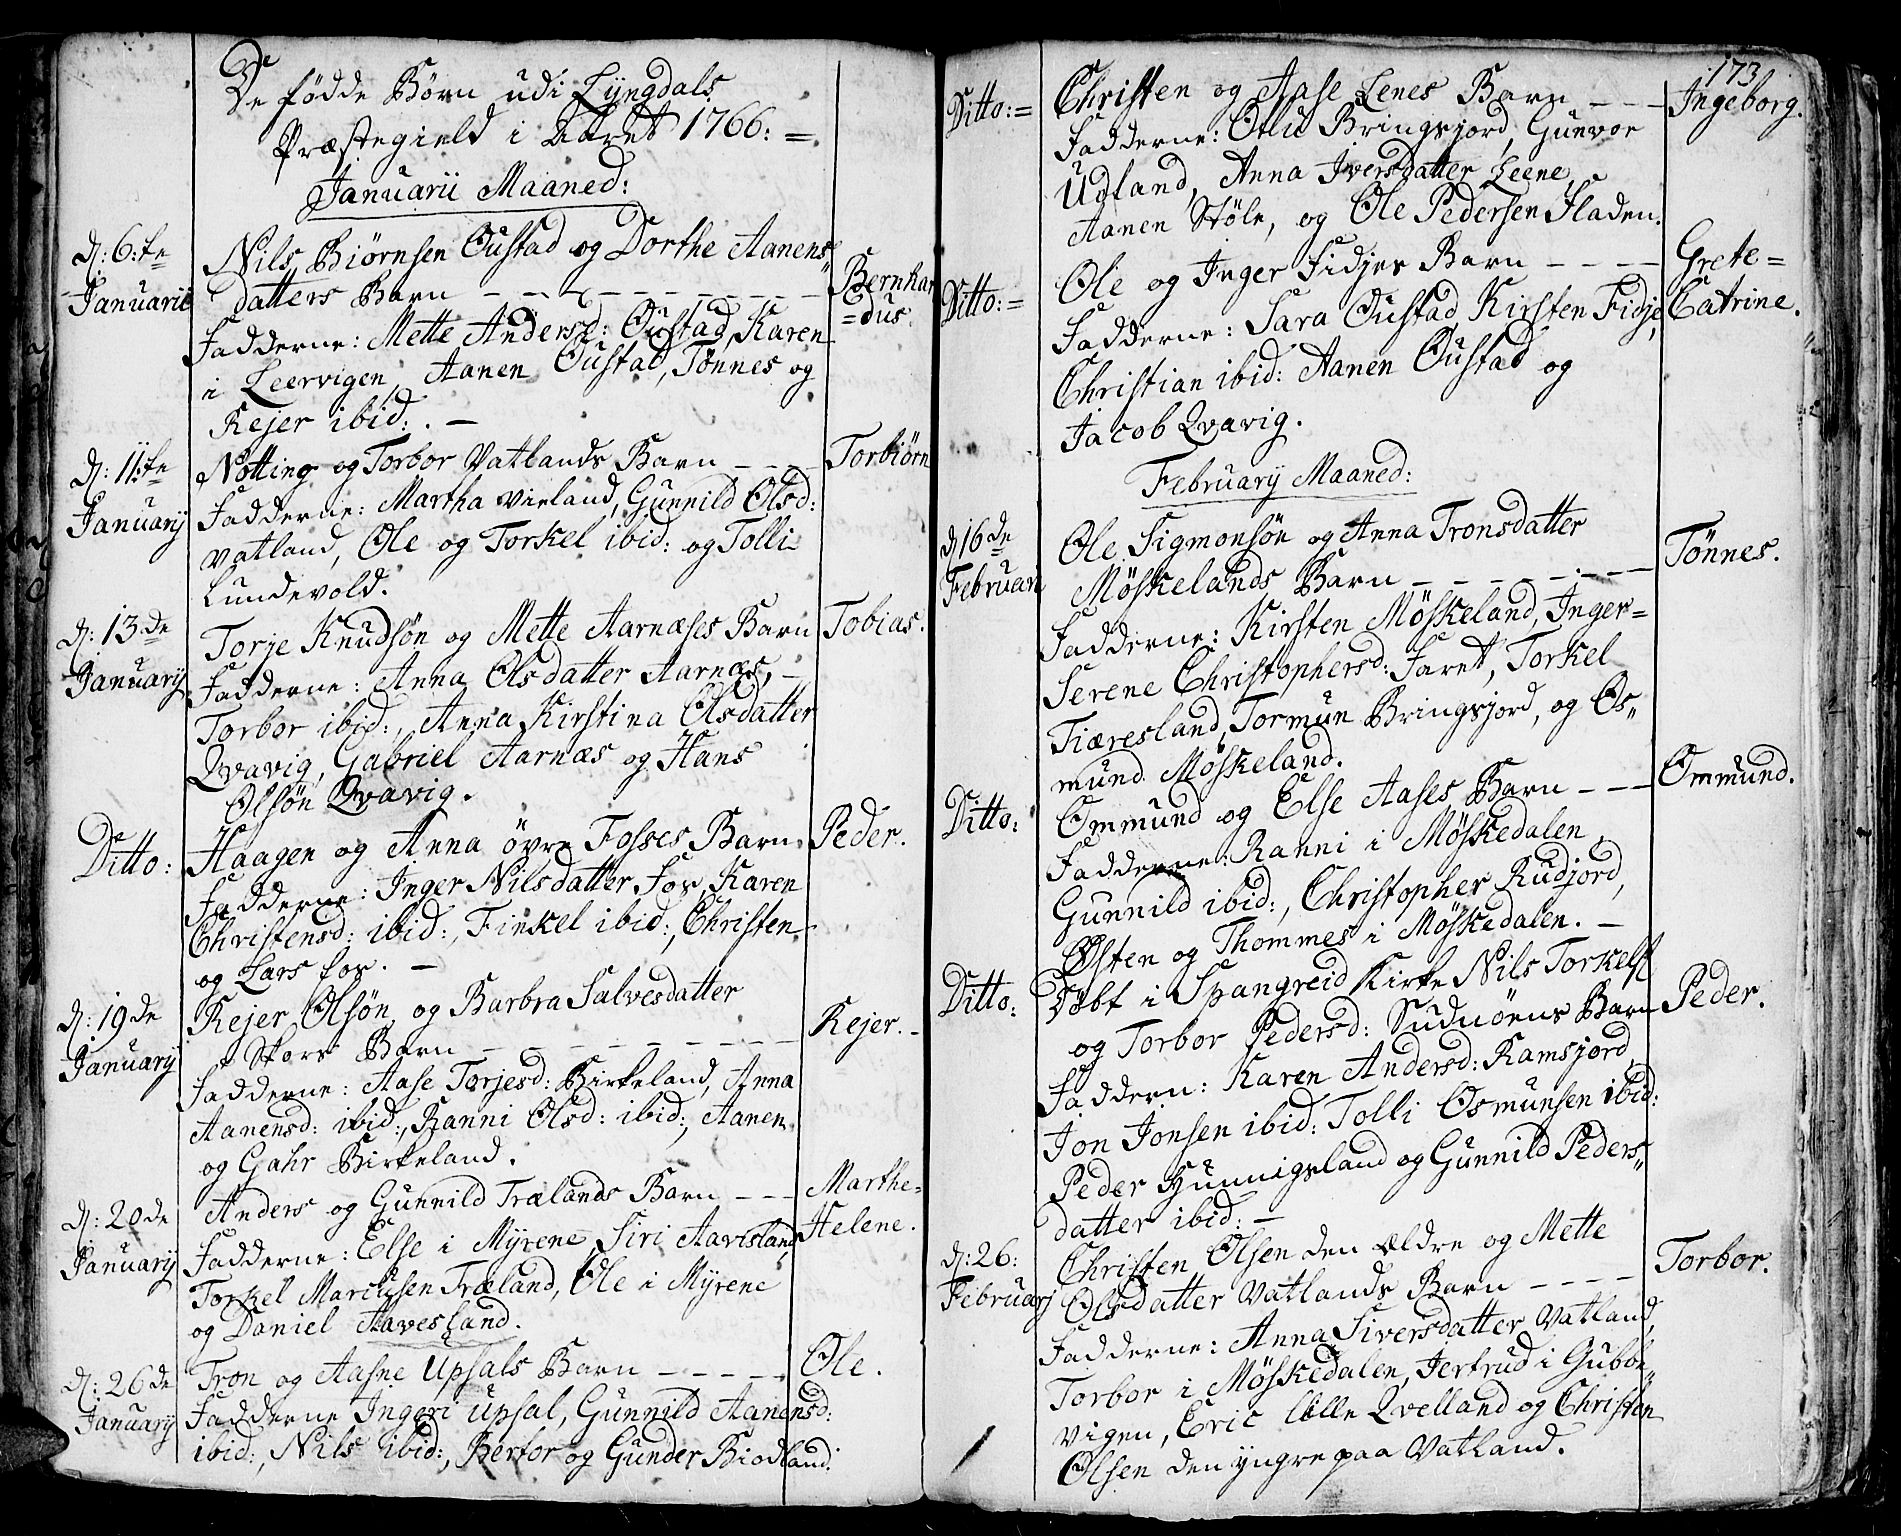 De fødde Børn udi Lyngdals
Præstegield i Aaret 1766: =
Januarii Maaned:
d: 6:te Januarii
Nils Biørnsen Oustad og Dorthe Aanens„
datters Barn — — — — — — — —
Bernhar
=dus.
Fadderne: Mette Andersd: Oustad, Karen
i Leervigen, Aanen Oustad, Tønnes og
Rejer ibid: . —
d: 11:te January
Notting og Torbor Vatlands Barn — — —
Torbiørn
Fadderne: Martha Vierland, Gunnild Olsd:
Vatland, Ole og Torkel ibid: og Tolli
Lundevold.
d: 13:de January
Torje Knudsøn og Mette Aarnæses Barn
Tobias.
Fadderne: Anna Olsdatter Aarnæs, —
Torbor ibid:, Anna Kirstina Olsdatter
Qvavig, Gabriel Aarnæs og Hans
Olsøn Qvavig.
Ditto:
Haagen og Anna øvre Fosses Barn
Peder.
Fadderne: Inger Nilsdatter Fos, Karen
Christensd: ibid:, Finkel ibid:, Christen
og Lars Fos. —
d: 19de January
Rejer Olsøn og Barbra Salvesdatter
Stors Barn — — — — — — — —
Rejer. —
Fadderne: Aase Torjesd: Birkeland, Anna
Aanensd: ibid:, Ranni Olsd: ibid:, Aanen
og Gahr Birkeland.
d: 20de January
Anders og Gunnild Trælands Barn — — —
Marthe=
Helene.
Fadderne: Else i Myrene, Siri Aavesland
Torkel Marcusen Træland, Ole i Myrene
og Daniel Aavesland.
d: 26de January
Tron og Aasne Upsals Barn — — — — —
Ole.
Fadderne Ingeri Upsal, Gunnild Aanensd:
ibid:, Nils ibid:, Bertor og Gunder Biodland.
173
Ditto:=
Christen og Aase Lenes Barn — — —
Ingeborg.
Fadderne: Olu Bringsjord, Gunvor
Udland, Anna Iversdatter Leene,
Aanen Støle, og Ole Pedersen Fladen.
Ditto:=
Ole og Inger Fidjes Barn — — — —
Grete=
Catrine.
Fadderne: Sara Oustad, Kirsten Fidje,
Christian ibid: Aanen Oustad og
Jacob Qvavig.
February Maaned:
d 16de Februari
Ole Sigmonsøn og Anna Tronsdatter
Møskelands Barn — — — — — — —
Tønnes.
Fadderne: Kirsten Møskeland, Inger=
Serene Christophersd: Faret, Torkel
Fiæresland, Tormun Bringsjord, og Os„
mund Møskeland.
Ditto:
Ommund og Else Aases Barn — — —
Ommund.
Fadderne: Ranni i Møskedalen,
Gunnild ibid:, Christopher Rudjord,
Østen og Thommes i Møskedalen. —
Ditto:
Døbt i Spangreid Kirke Nils Torkels:
og Torbor Pedersd: Sudnøens Barn
Peder.
Faddern: Karen Andersd: Ramsjord,
Jon Jonsen ibid: Tolli Osmunsen ibid:
Peder Hunnigsland og Gunnild Peders„
datter ibid: —
d: 26: February
Christen Olsen den ældre og Mette
Olsdatter Vatlands Barn — — — —
Torbor.
Fadderne: Anna Siversdatter Vatland,
Torbor i Møskedalen, Jertrud i Gubbe„
vigen, Eric lille Qvelland og Christen
Olsen den yngre paa Vatland.